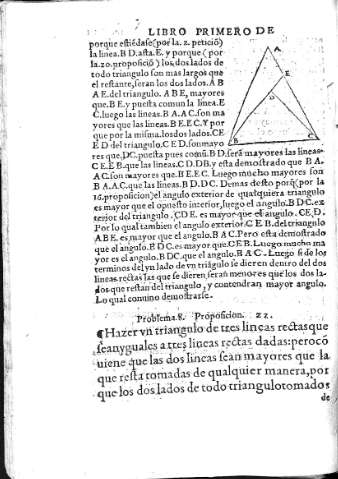 LIBRO PRIMERO DE
porque estiédase (por la. 2. petició)
la linea. B D. asta. E. y porque (por
la. 20. proposició) los dos lados de
todo triangulo son mas largos que
el restante, seran los dos lados. A B
A E. del triangulo. A B E, mayores
que. B E. y puesta comun la linea. E
C. luego las lineas. B A. A C. son ma
yores que las lineas. B E. E C. Y por
que por la misma. los dos lados. C E
E D del triangulo. C E D. son mayo
res que. D C. puesta pues comũ. B D. será mayores las lineas.
C E. E B. que las lineas. C D. D B. y esta demostrado que B A.
A C. son mayores que. B E. E C. Luego mucho mayores son
B A. A C. que las lineas. B D. D C. Demas desto porq̃ (por la
16. proposicion) el angulo exterior de qualquiera triangulo
es mayor que el opuesto interior, luego el angulo. B D C. ex
terior del triangulo. C D E. es mayor que el angulo. C E D.
Por lo qual tambien el angulo exterior. C E B. del triangulo
A B E. es mayor que el angulo. B A C. Pero esta demostrado
que el angulo. B D C. es mayor que. C E B. Luego mucho ma
yor es el angulo. B D C. que el angulo. B A C. Luego si de los
terminos del yn lado de vn triãgulo se dieren dentro del dos
lineas rectas las que se dieren, seran menores que los dos la-
dos que restan del triangulo, y contendran mayor angulo.
Lo qual conuino demostrarse.
Problema. 8. Proposicion. 22.
¶Hazer vn triangulo de tres lineas rectas que
sean yguales a tres lineas rectas dadas: pero cō
uiene que las dos lineas sean mayores que la
que resta tomadas de qualquier manera, por
que los dos lados de todo triangulo tomados
de
A
E
D
B
C